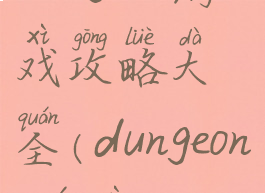 xì gōng lüè dà
戏攻略大
quán
全(dungeon